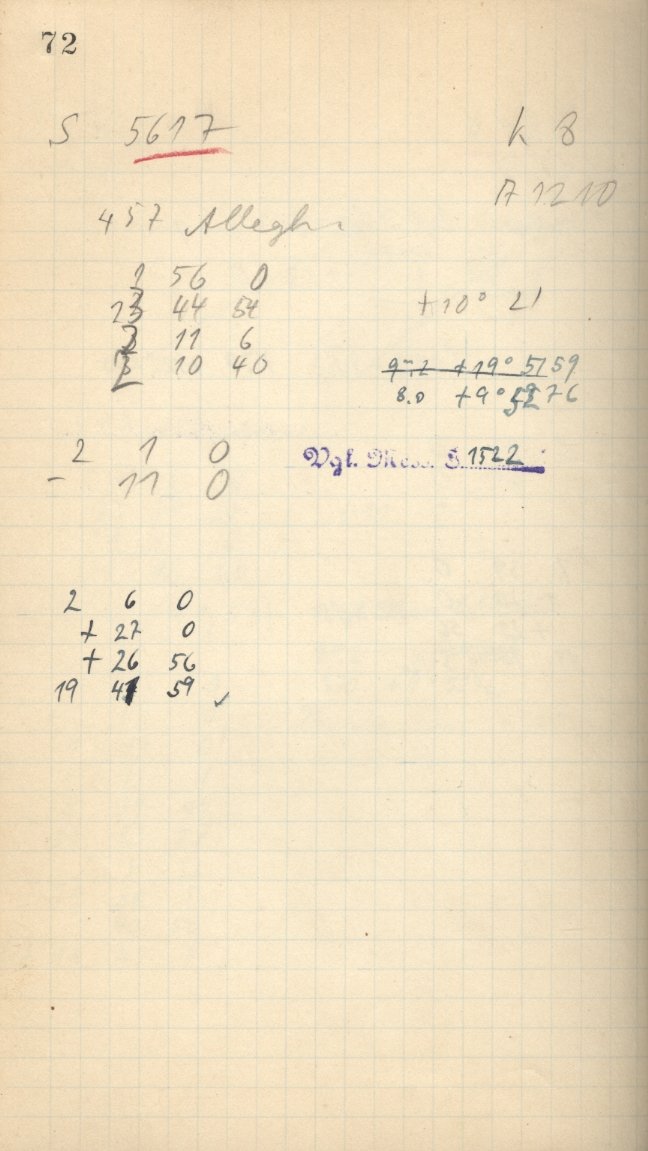 72
S 5617 k 8
A 1210
457 Allegh.
1 56 0
23 44 54 +10° 21
11 6
10 40 9m.2 +19° 5159
8.0 +9° 5276
2 1 0 Vgl. Mess. S. 1522
- 11 0
2 6 0
+ 27 0
+ 26 56
19 41 59 ✓